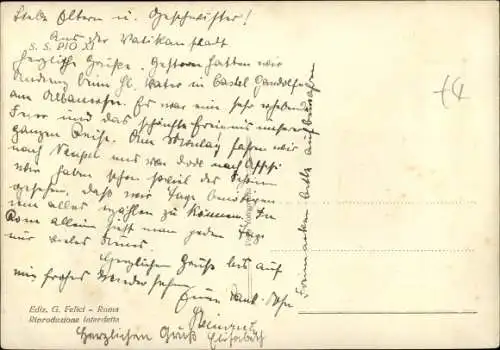 Liebe Eltern u. Geschwister!
Aus der Vatikanstadt
S. S. PIO XI
herzliche Grüße. Gestern hatten wir
Audienz beim hl. Vater in Castel Gandolfo
am Albanersee. Es war eine sehr erhebende
Feier und das schönste Ereignis unserer
ganzen Reise. Am Montag fahren wir
nach Neapel und von dort nach Assisi
Wir haben schon soviel des Schönen
gesehen, daß wir Tage benötigen
um alles erzählen zu können. In
Rom allein sieht man jeden Tag
nur vieles Neues.
Herzlichen Gruß bis auf
ein frohes Wiedersehen
Euer dank. Sohn
Heinrich
Herzlichen Gruß Elisabeth
Ediz. G. Felici - Roma
Riproduzione interdetta
Briefmarken bitte aufbewahren